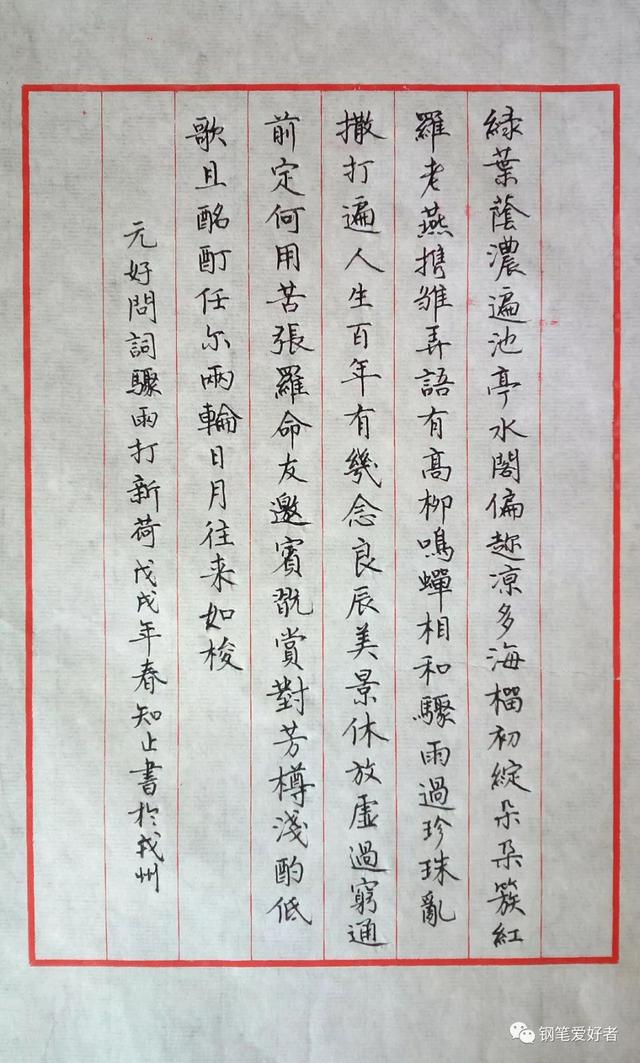 緑葉蔭濃遍池亭水閣偏趂涼多海榴初綻朵朵簇紅
羅老燕携雏弄語有高柳鳴蟬相和驟雨過珍珠亂
撒打遍人生百年有幾念良辰美景休放虛過窮通
前定何用苦張羅命友邀賓翫賞對芳樽淺酌低
歌且酩酊任尓兩輪日月往来如梭
元好問詞驟雨打新荷戊戌年春知止書於戎州
钢笔爱好者